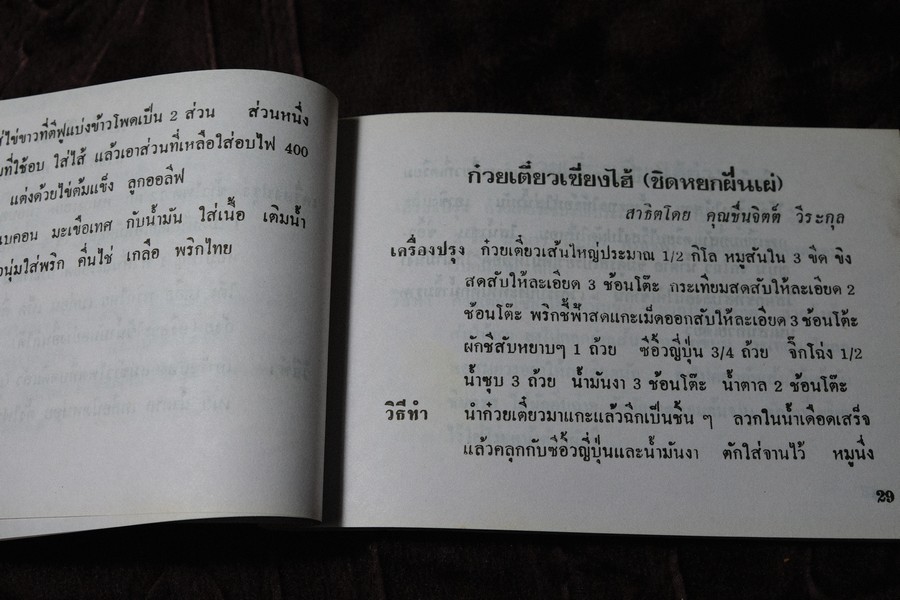 ใส่ไข่ขาวที่ตีฟูแบ่งข้าวโพดเป็น 2 ส่วน ส่วนหนึ่ง
ที่ใช้อบ ใส่ไส้ แล้วเอาส่วนที่เหลือใส่อบไฟ 400
แต่งด้วยไข่ต้มแข็ง ลูกออลีฟ
เบคอน มะเขือเทศ กับน้ำมัน ใส่เนื้อ เติมน้ำ
นุ่มใส่พริก คื่นไช่ เกลือ พริกไทย
ก๋วยเตี๋ยวเซี่ยงไฮ้ (ชิดหยกฝืนเผ่)
สาธิตโดย คุณชื่นจิตต์ วีระกุล
เครื่องปรุง ก๋วยเตี๋ยวเส้นใหญ่ประมาณ 1/2 กิโล หมูสันใน 3 ขีด ขิง
สดสับให้ละเอียด 3 ช้อนโต๊ะ กระเทียมสดสับให้ละเอียด 2
ช้อนโต๊ะ พริกชี้ฟ้าสดแกะเม็ดออกสับให้ละเอียด 3 ช้อนโต๊ะ
ผักชีสับหยาบๆ 1 ถ้วย ซีอิ้วญี่ปุ่น 3/4 ถ้วย จิ๊กโฉ่ง 1/2
น้ำซุบ 3 ถ้วย น้ำมันงา 3 ช้อนโต๊ะ น้ำตาล 2 ช้อนโต๊ะ
วิธีทำ นำก๋วยเตี๋ยวมาแกะแล้วฉีกเป็นชิ้น ๆ ลวกในน้ำเดือดเสร็จ
แล้วคลุกกับซีอิ้วญี่ปุ่นและน้ำมันงา ตักใส่จานไว้ หมูนึ่ง
29